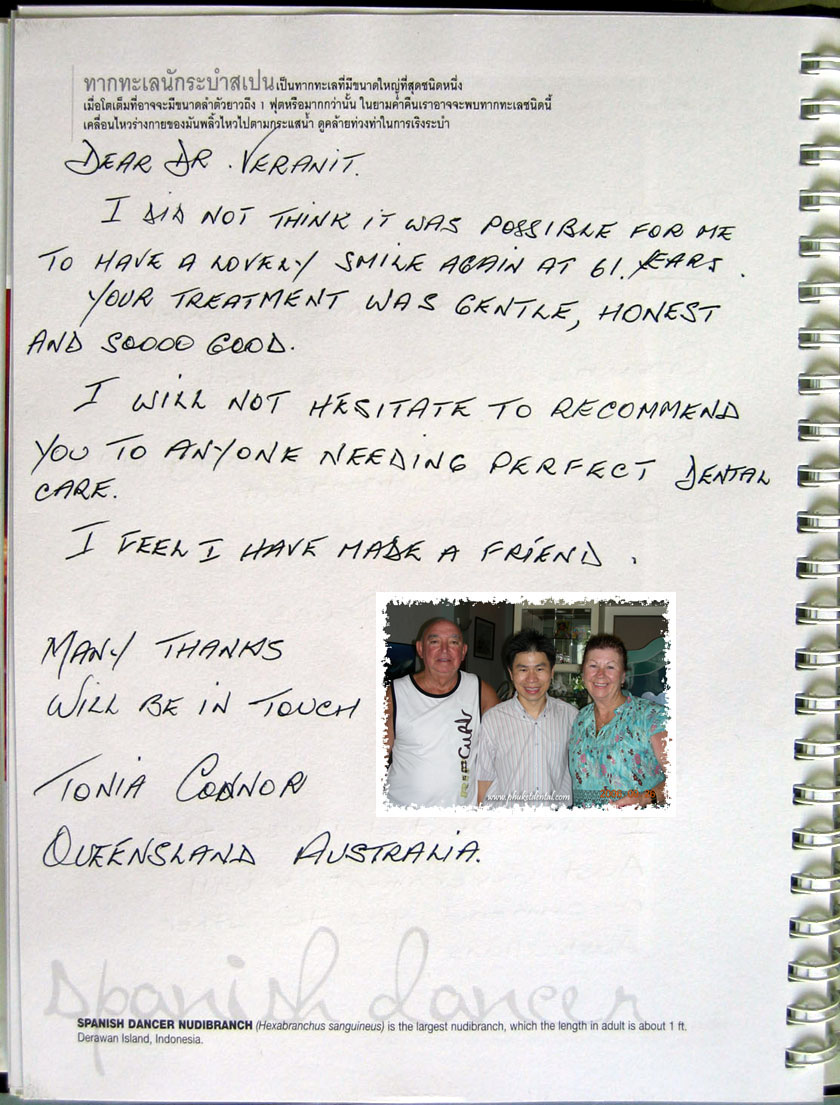 ทากทะเลนักระบำสเปนเป็นทากทะเลที่มีขนาดใหญ่ที่สุดชนิดหนึ่ง
เมื่อโตเต็มที่อาจจะมีขนาดลำตัวยาวถึง 1 ฟุตหรือมากกว่านั้น ในยามค่ำคืนเราอาจจะพบทากทะเลชนิดนี้
เคลื่อนไหวร่างกายของมันพลิ้วไหวไปตามกระแสน้ำ ดูคล้ายท่วงท่าในการเริงระบำ
DEAR DR. VERANIT.
I DID NOT THINK IT WAS POSSIBLE FOR ME
TO HAVE A LOVELY SMILE AGAIN AT 61. YEARS.
YOUR TREATMENT WAS GENTLE, HONEST
AND SOOOO GOOD.
I WILL NOT HESITATE TO RECOMMEND
YOU TO ANYONE NEEDING PERFECT DENTAL
CARE.
I FEEL I HAVE MADE A FRIEND.
MANY THANKS
WILL BE IN TOUCH
TONIA CONNOR
QUEENSLAND AUSTRALIA.
www.phuketdental.com
spanish dancer
SPANISH DANCER NUDIBRANCH (Hexabranchus sanguineus) is the largest nudibranch, which the length in adult is about 1 ft.
Derawan Island, Indonesia.